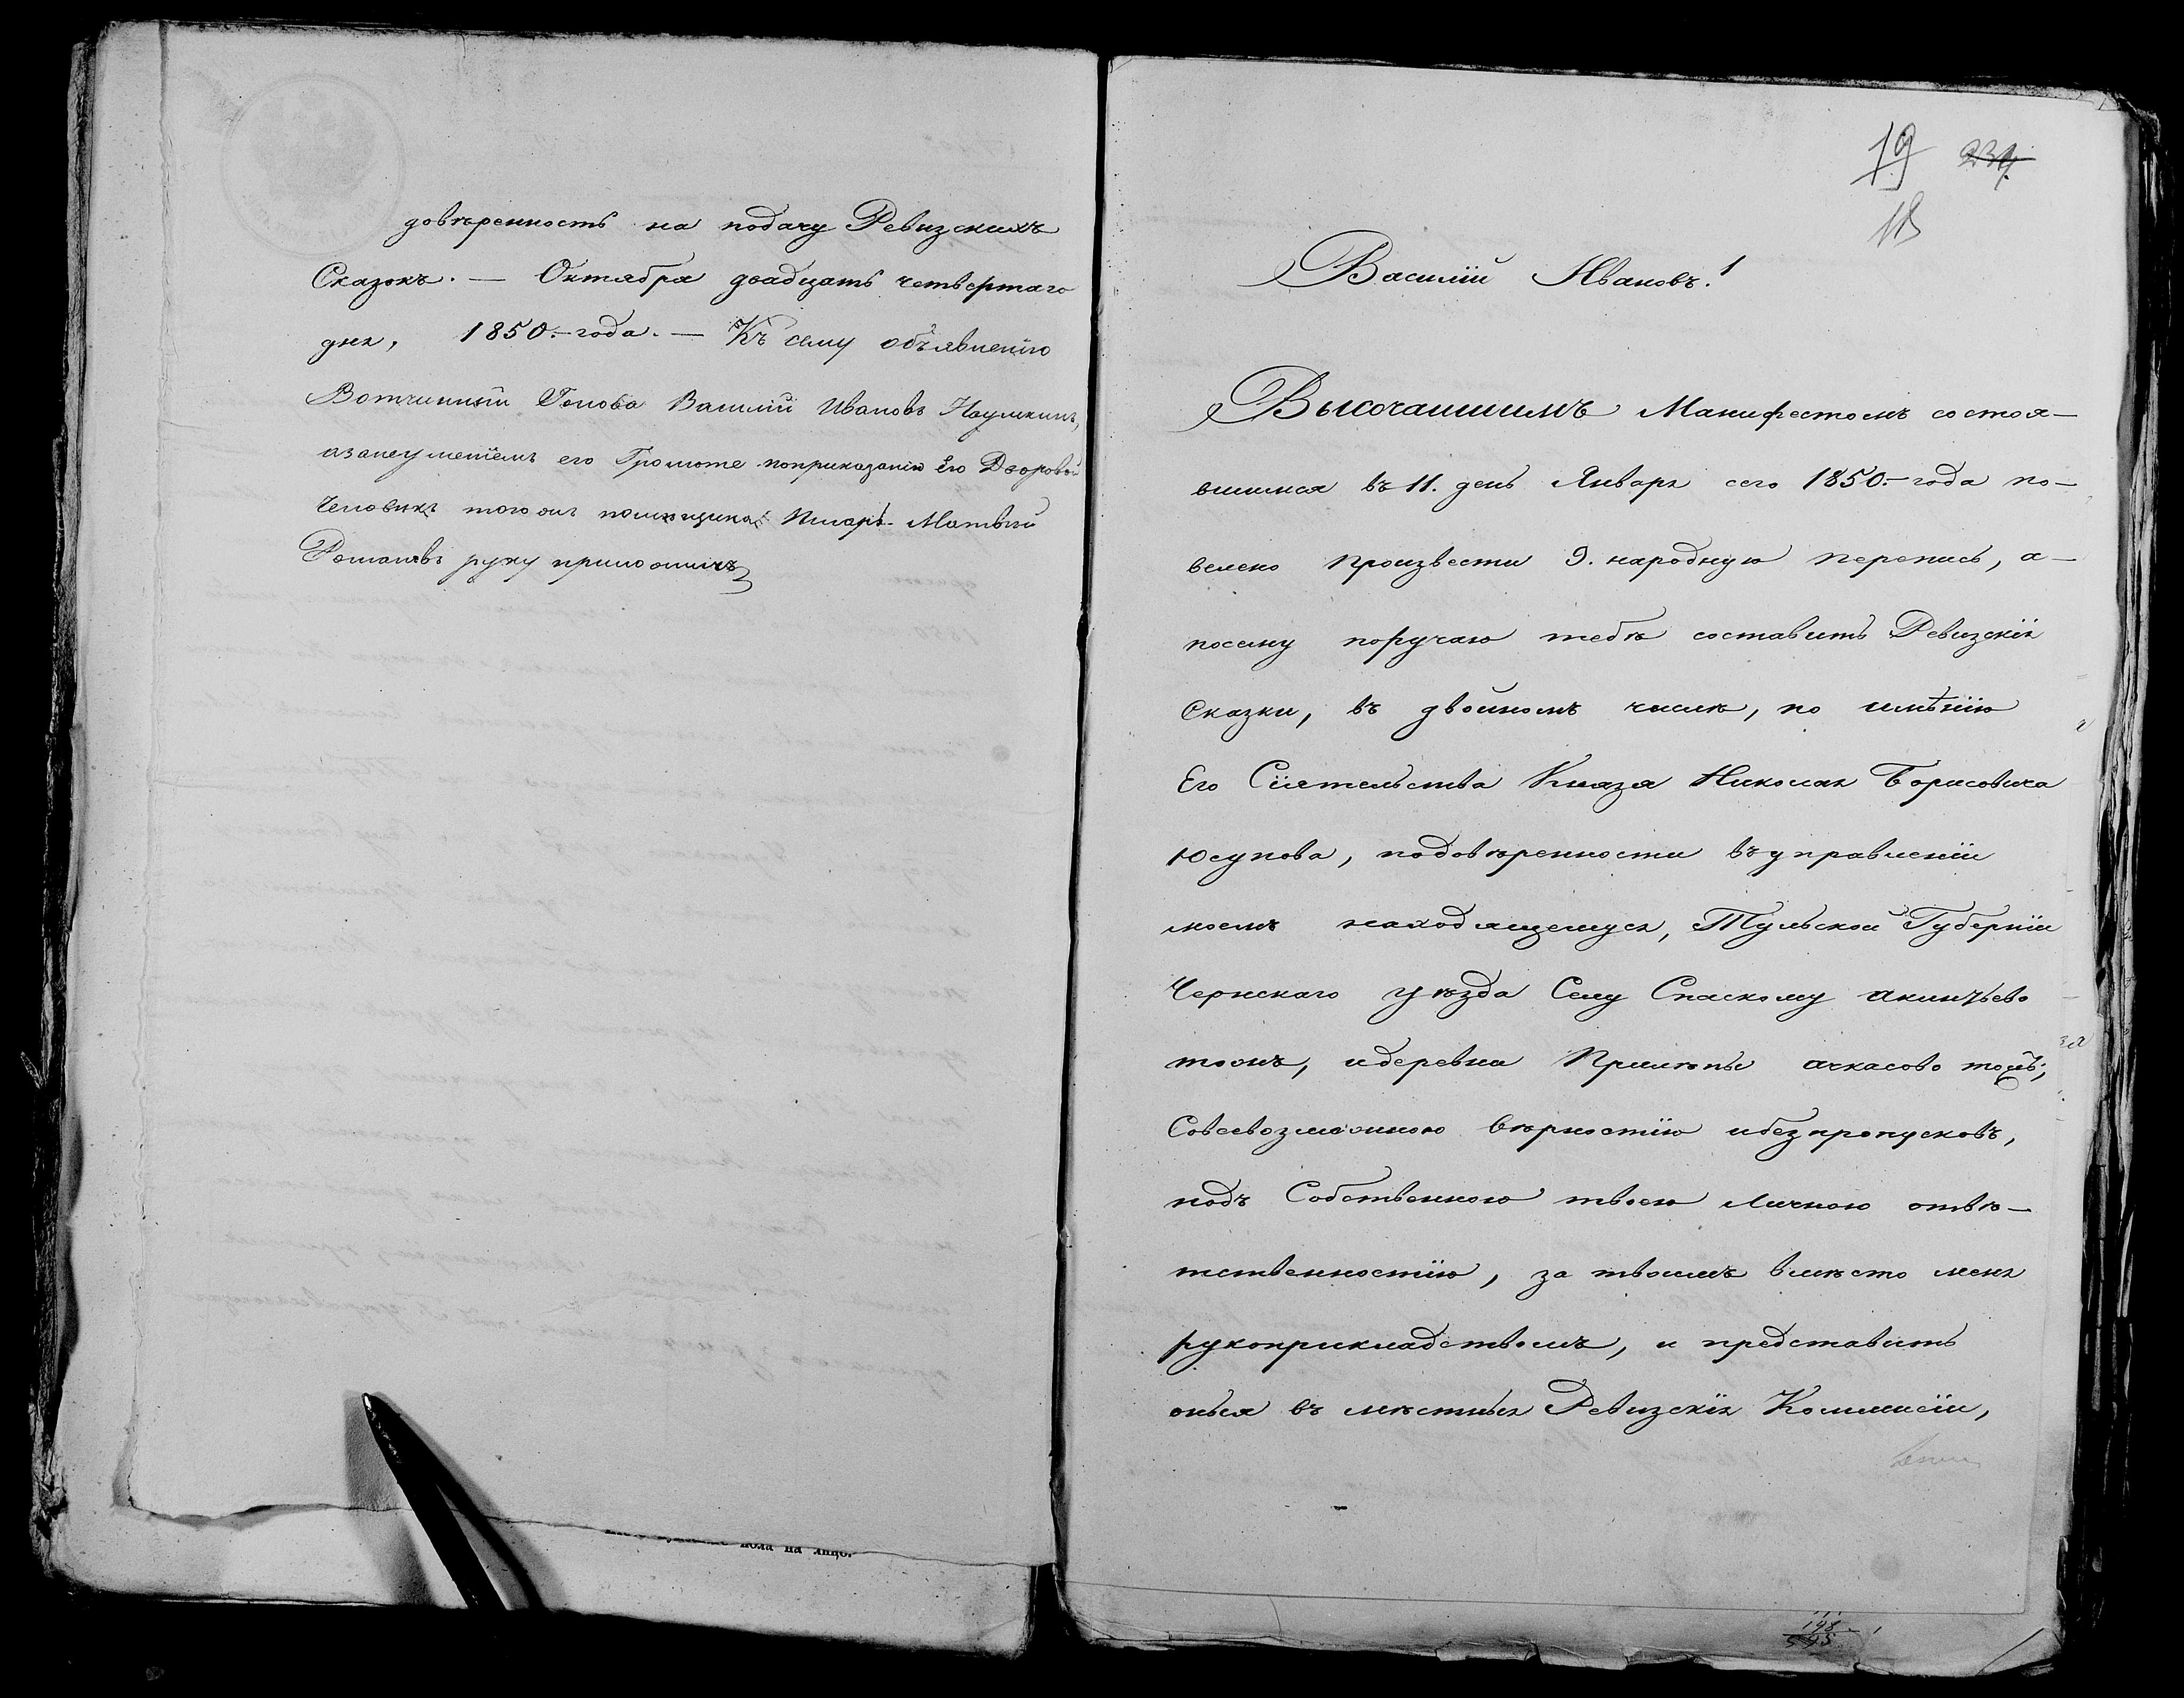 довѣренность на подачу Ревизскихъ
Сказокъ. — Октября двадцать четвертаго
дня, 1850.- года. — Къ сему объявленію
Вотчинный Голова Василій Ивановъ Наумкинъ,
азанеумениемъ его Грамоте поприказанію Его Дворовой
Человикъ того жъ помещика Писарь Матвѣй
Романовъ руку приложилъ
19 234
18
Василій Ивановъ!
Высочайшимъ Манифестомъ состоя-
вшимся въ 11. день Января сего 1850.- года по-
велено произвести 9. народную перепись, а-
посему поручаю тебѣ составить Ревизскія
Сказки, въ двойномъ числѣ, по имѣнію
Его Сіятельства Князя Николая Борисовича
Юсупова, подовѣренности въуправленіи
моемъ находящемуся, Тульской Губерніи
Чернскаго уѣзда Селу Спаскому акинтьево
тожъ, идеревни Прилѣпы ачкасово тожъ;
Совсевозможною вѣрностію ибезпропусковъ,
подъ Собственною твоею личною отвѣ-
тственностію, за твоимъ вмѣсто меня
рукоприкладствомъ, и представить
оныя въ мѣстныя Ревизскія Коммисіи,
пола на лицо.
198
595